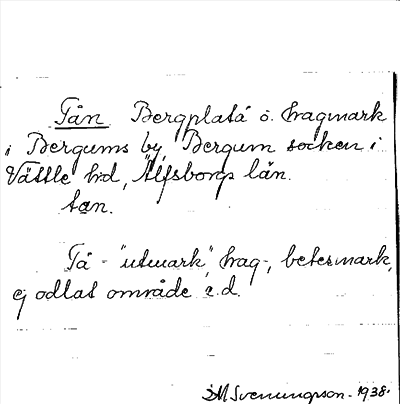 Tån Bergplatå o. hagmark
i Bergums by, Bergum socken i
Vättle hd, Älfsborgs län.
tan.
Tå - "utmark", hag-, betesmark,
ej odlat område o.d.
SM Svenungson - 1938.